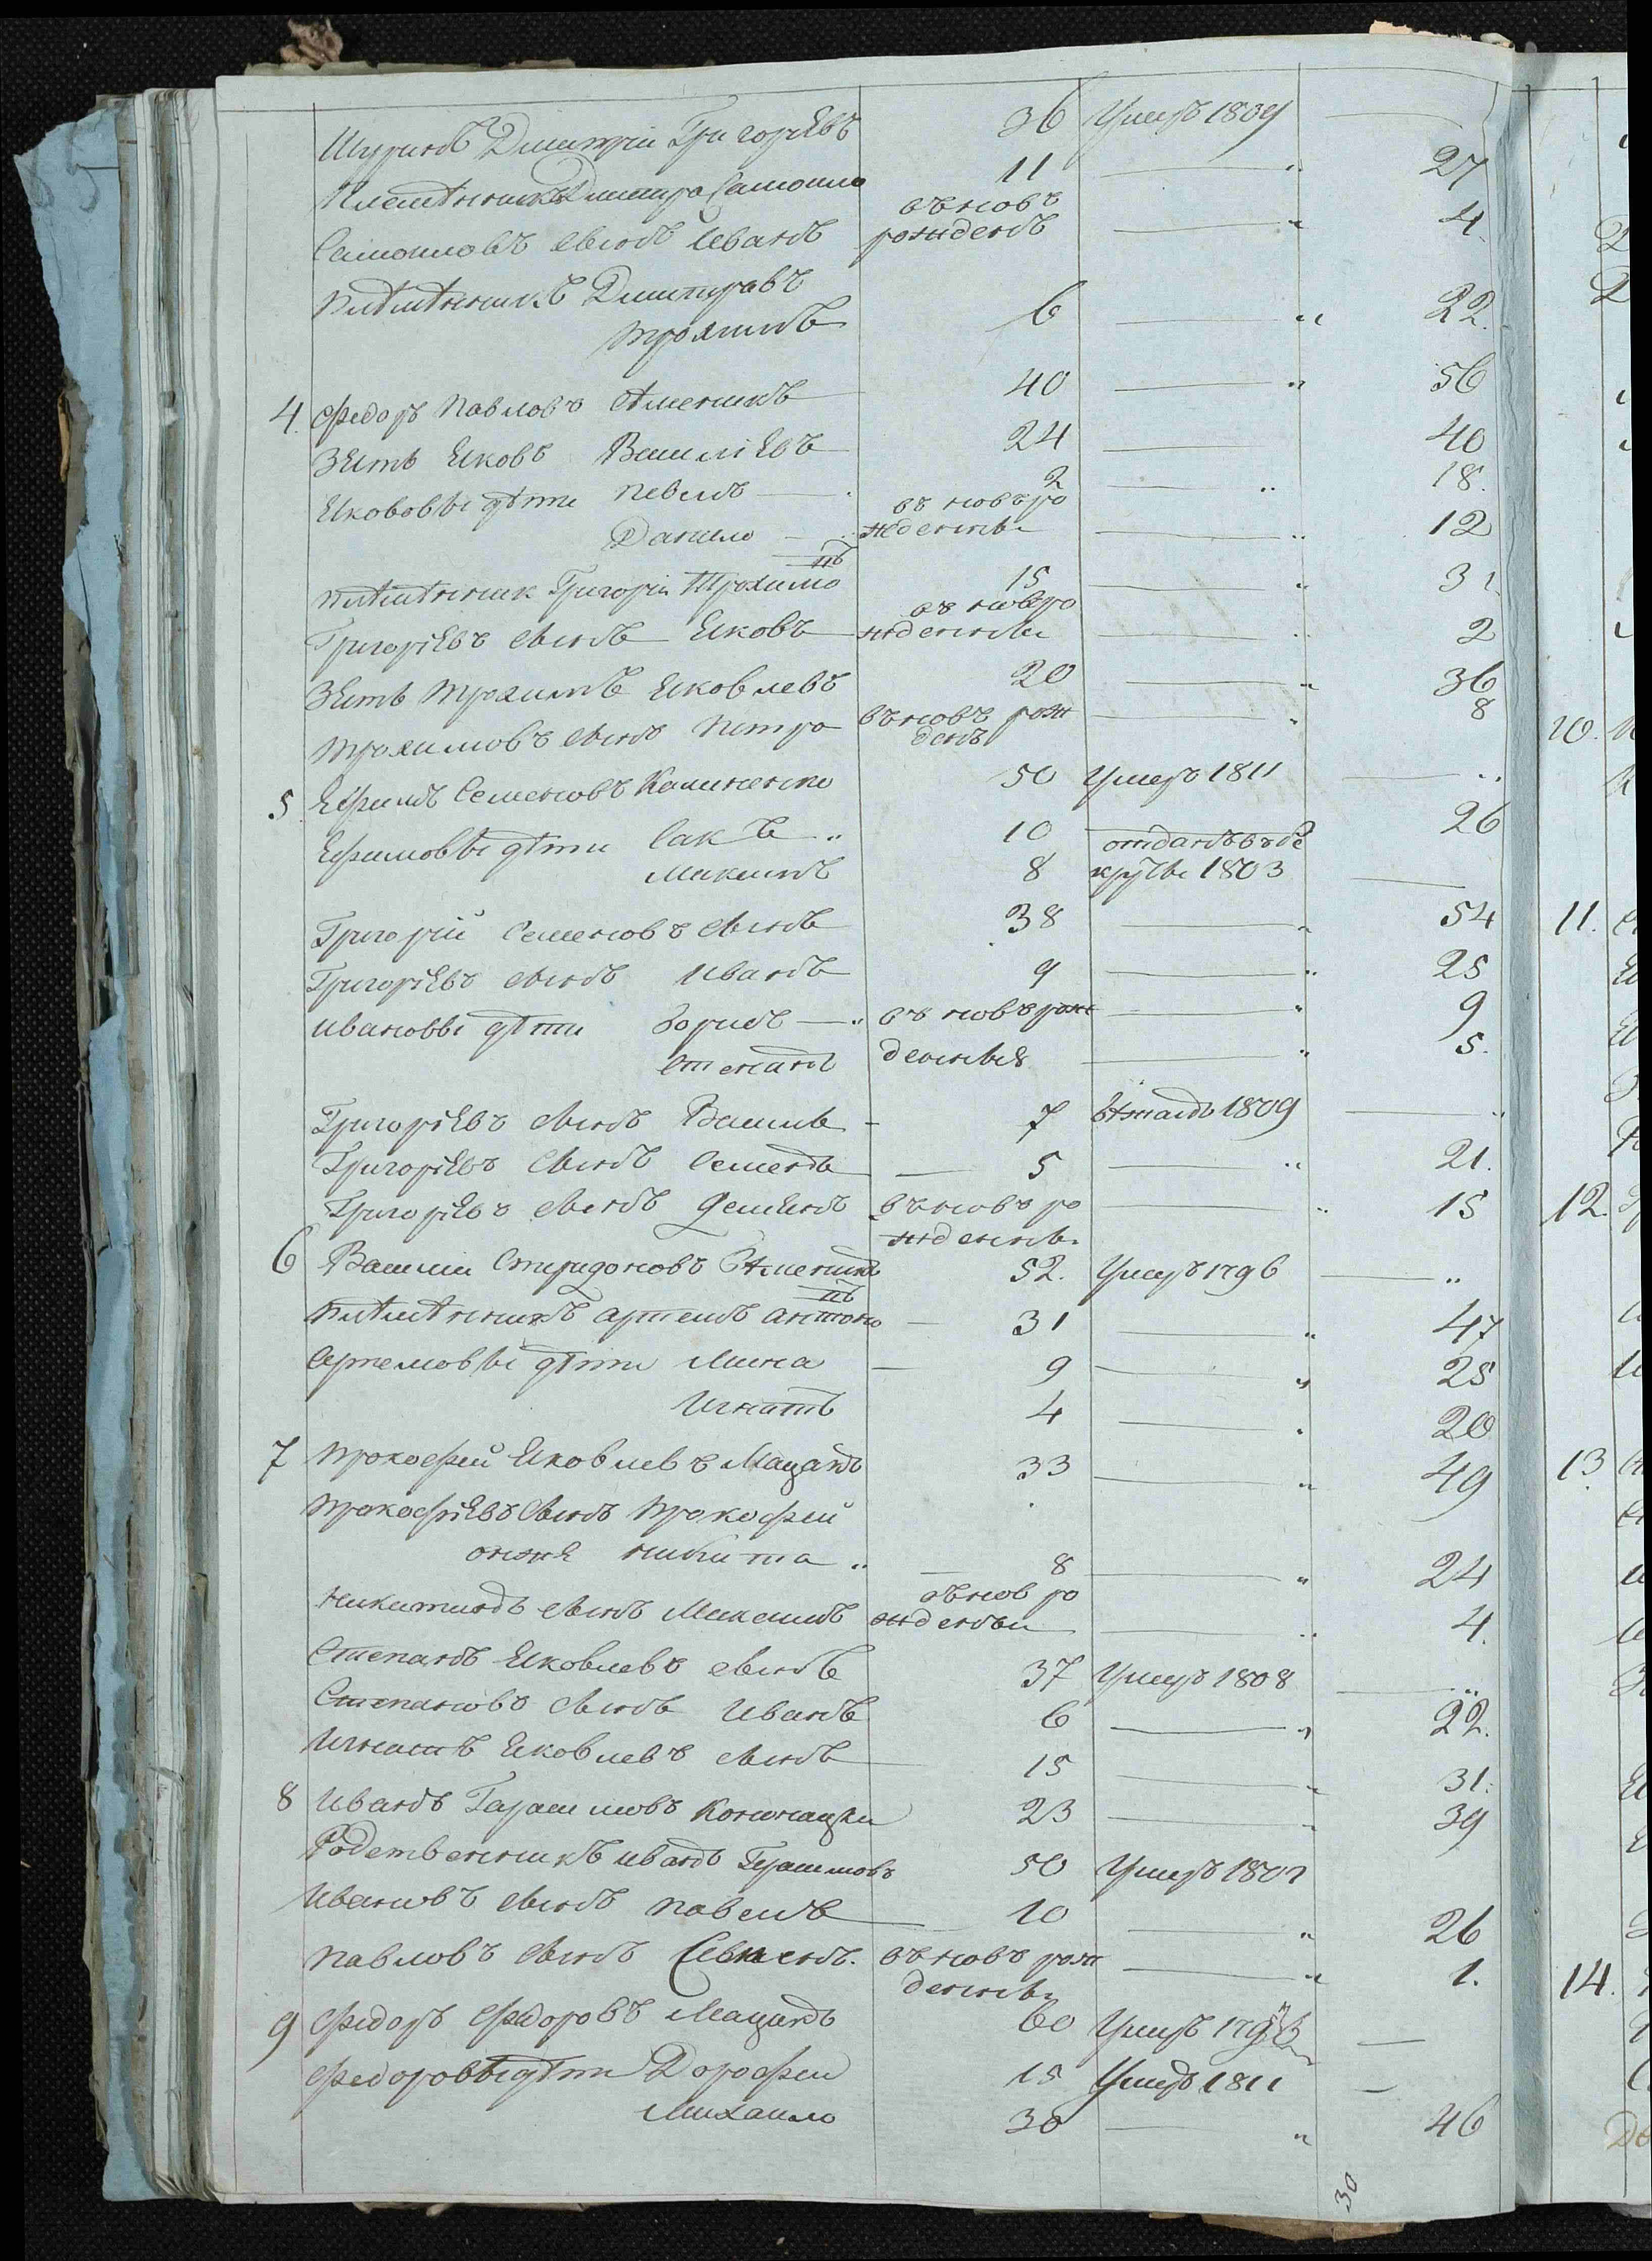 Шуринъ Дмитрій Григорьевъ 36 Умеръ 1809
Племѣнникъ Дмитра Самоило 11 " 27
въновъ
Самоиловъ сынъ Иванъ рожденъ " 4
племѣнникъ Дмитровъ
трохимъ 6 " 22.
4. Федоръ Павловъ 40 " 56
зять Яковъ Василіевъ 24 40
Якововы дѣти Павелъ 2 " 18.
въ новъ ро
Данило жденны " 12
въ
племѣнник Григорій Трохимо 15 " 31
въ новъ ро
Григоріевъ сынъ Яковъ жденны " 2
зять трохимъ Яковлевъ 20 " 36
трохимовъ сынъ Петро въновъ рож " 8
денъ
5 Ефимъ Семеновъ Калиненко 50 Умеръ 1811 "
Ефимовы дѣти Сакъ " 10 26
отданъ въ ре
Максимъ 8 круты 1803
Григорій Семеновъ сынъ 38 " 54
Григоріевъ сынъ Иванъ 9 " 25
Ивановы дѣти Борисъ " въ новъ рож " 9
Степанъ денныя " 5.
Григоріевъ сынъ Василь 7 1809 "
Григоріевъ сынъ Семенъ 5 " 21.
Григоріевъ сынъ Демянъ въновъ ро " 15
жденны
6 Василій Спиридоновъ 52. Умеръ 1796 "
въ
племѣнникъ артемъ антоно 31 " 47
Артемовы дѣти Мина 9 " 25
Игнатъ 4 " 20
7 прокофей Яковлевъ Мацакъ 33 " 49
прокофіевъ сынъ прокофей
онже никита " 8 " 24
въновъ ро
никитинъ сынъ Максимъ жденъи " 4.
Степанъ Яковлевъ сынъ 37 Умеръ 1808 "
Степановъ сынъ Иванъ 6 " 22.
Игнатъ Яковлевъ сынъ 15 " 31.
8 Иванъ Гарасимовъ 23 " 39
Родственникъ иванъ Герасимовъ 50 Умеръ
Ивановъ сынъ павелъ 10 " 26
павловъ сынъ въновъ рож " 1.
денны
9 Федоръ Федоровъ Мацакъ 60 Умеръ
Федоровы дѣти Дорофей 15 Умеръ 1811
Михаило 30 " 46
30
10.
11.
12.
13.
14.